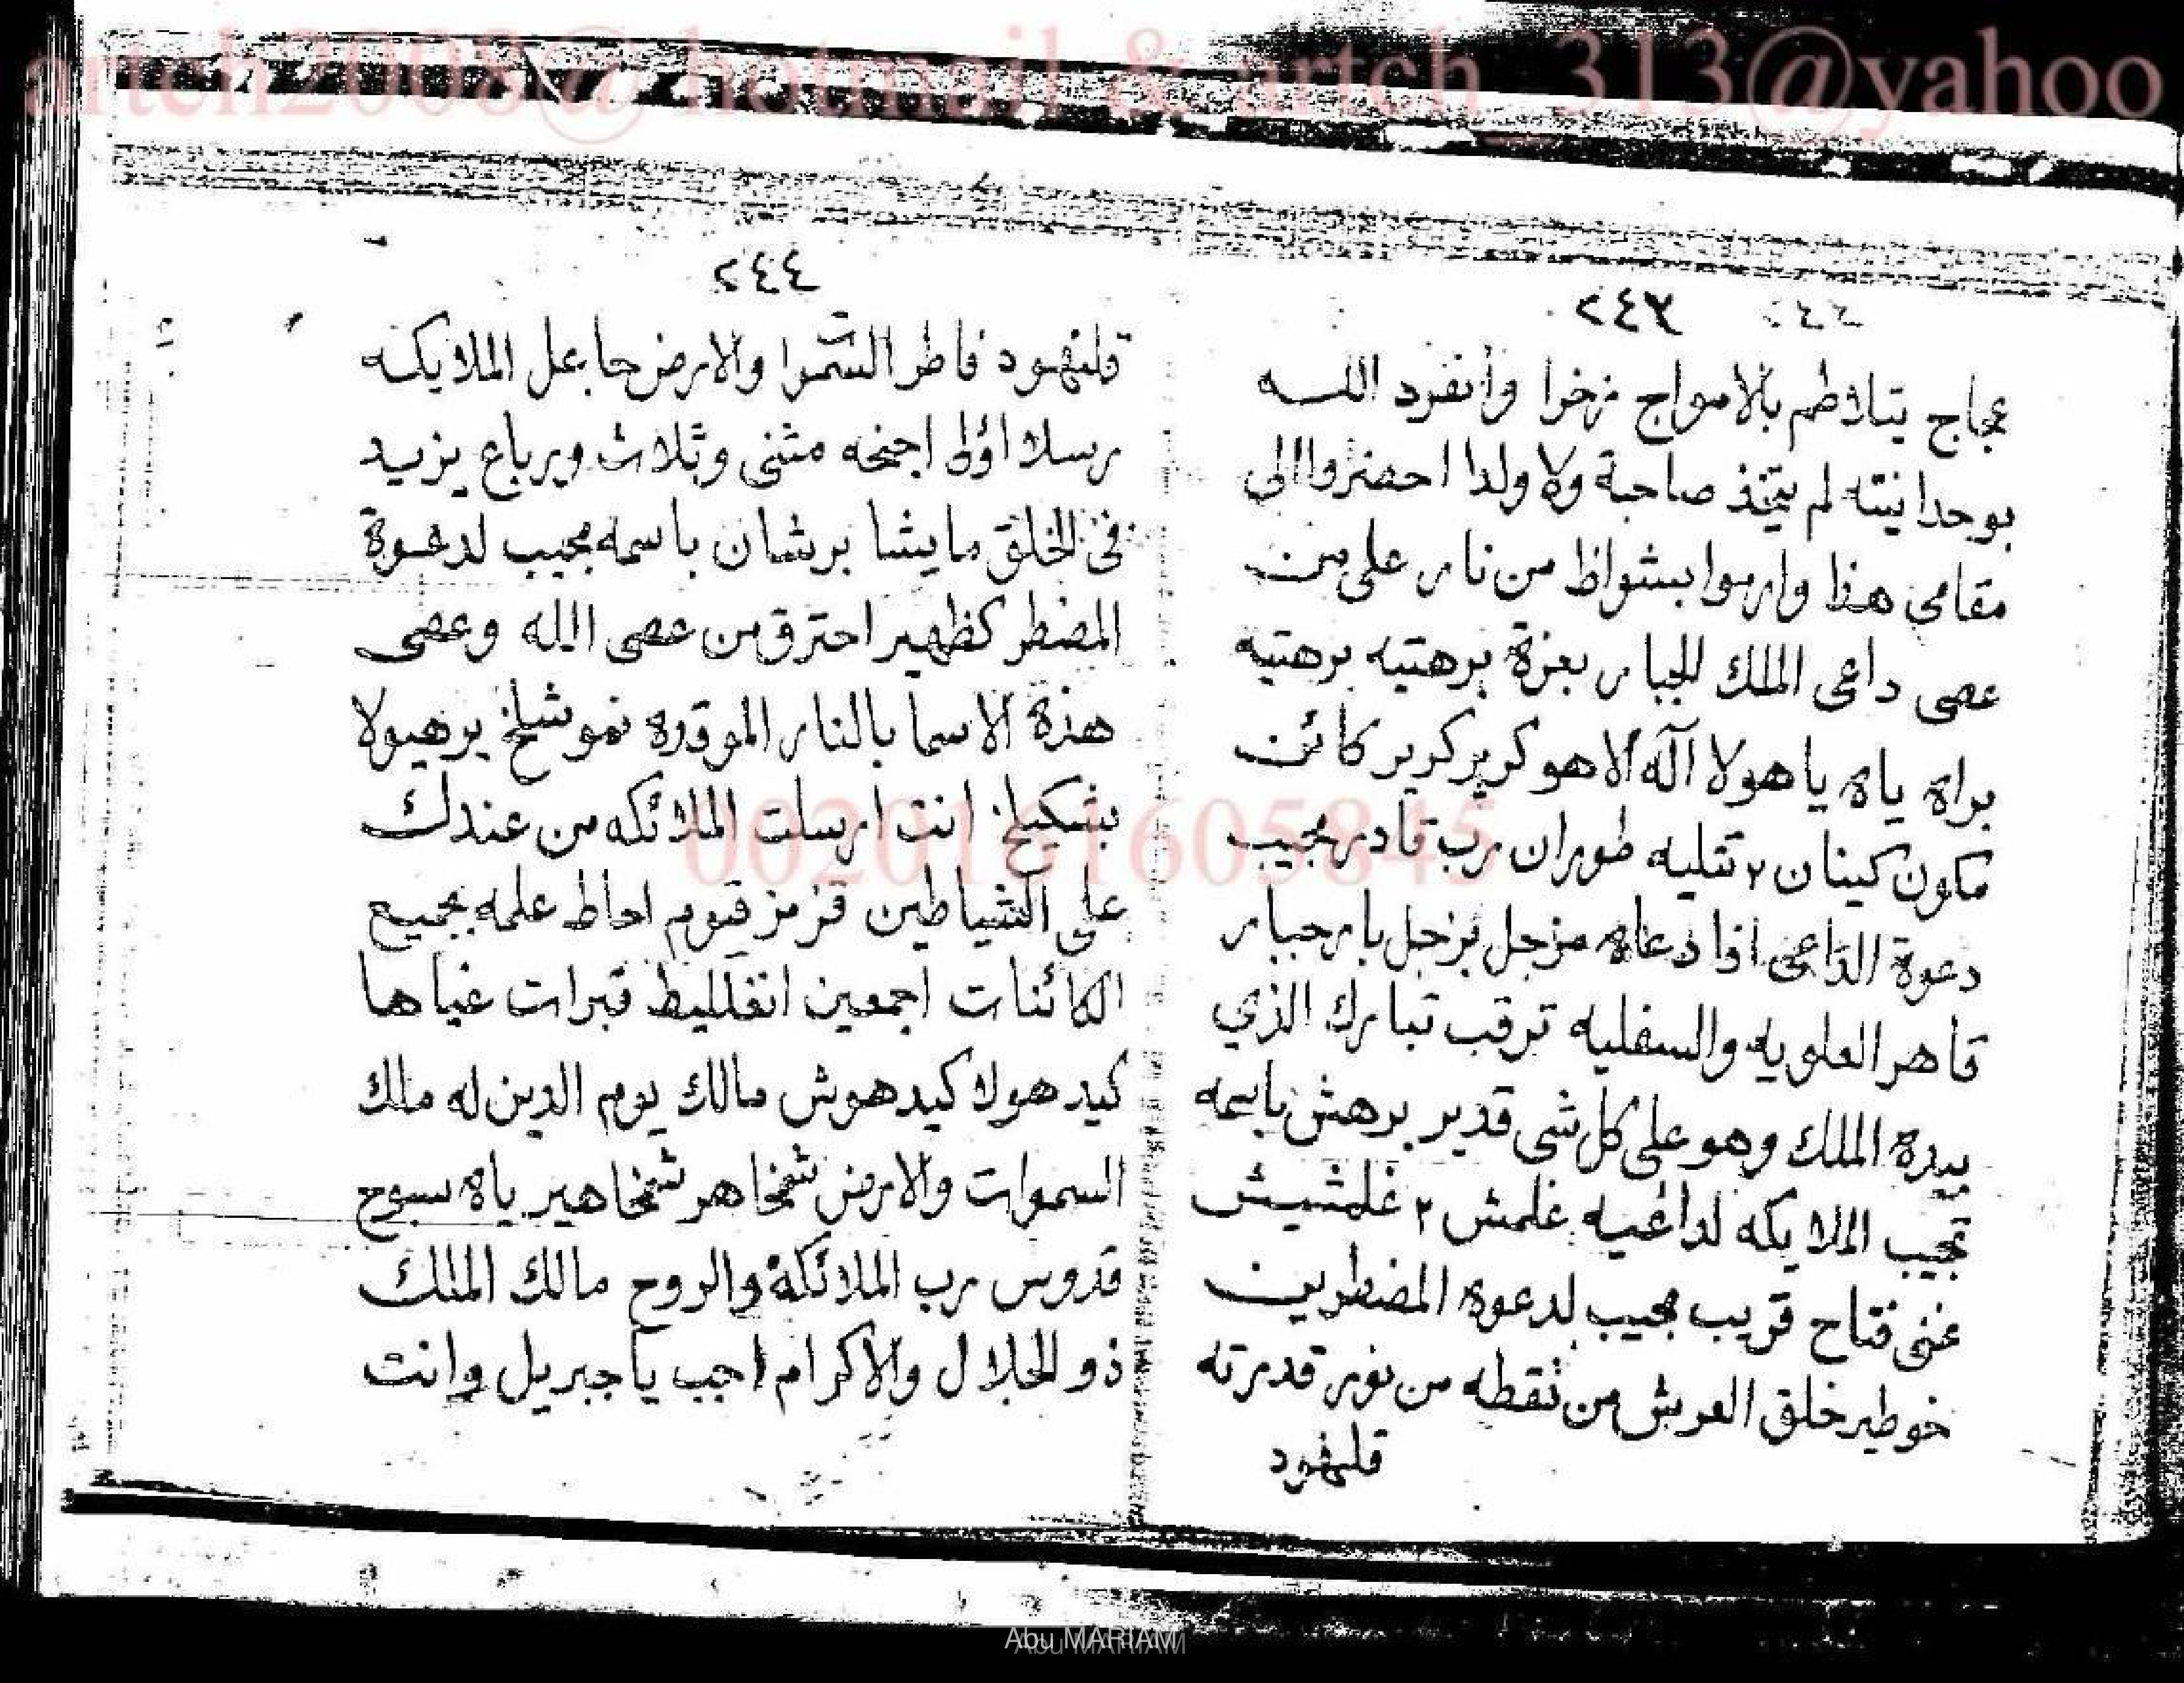 artch2008@hotmail & artch_313@yahoo
٢٤٣
عجاج يتلاطم بالامواج زخرا وأنفرد اللـه
بوحدانيته لم يتخذ صاحبة ولا ولدا احضروا الى
مقامى هذا وارموا بشواظ من نار على من
عصى داعى الملك الجبار بعزة برهتيه برهتيه
براه ياه ياهولا اله الا هو كرير كرير كائن
مكون كينان ٢ تتليه طوران رب قادر مجيب
دعوة الداعى اذا دعاه مزجل بزجل بار جبار
قاهر العلويه والسفليه ترقب تبارك الذي
بيده الملك وهو على كل شى قدير برهش باسمه
تجيب الملايكه لداعيه غلمش ٢ غلمشيش
غنى فتاح قريب مجيب لدعوة المضطرين
خوطير خلق العرش من نقطه من نور قدرته
قلنهود
٢٤٤
قلنهود فاطر السموا والارض جاعل الملايكه
رسلا اولى اجنحه مثنى وثلاث ورباع يزيد
فى الخلق مايشا برشان باسمه مجيب لدعوة
المضطر كظهير احترق من عصى الله وعصى
هذة الاسما بالنار الموقده نموشلخ برهيولا
بشكيلخ انت ارسلت الملائكه من عندك
على الشياطين قزمز قيوم احاط علمه بجميع
الكائنات اجمعين انغلليط قبرات غياها
كيد هولا كيدهوش مالك يوم الدين له ملك
السموات والارض شمخاهر شمخاهير ياه سبوح
قدوس رب الملائكة والروح مالك الملك
ذو الجلال والاكرام اجب ياجبريل وانت
0020161605845
Abu MARIAM